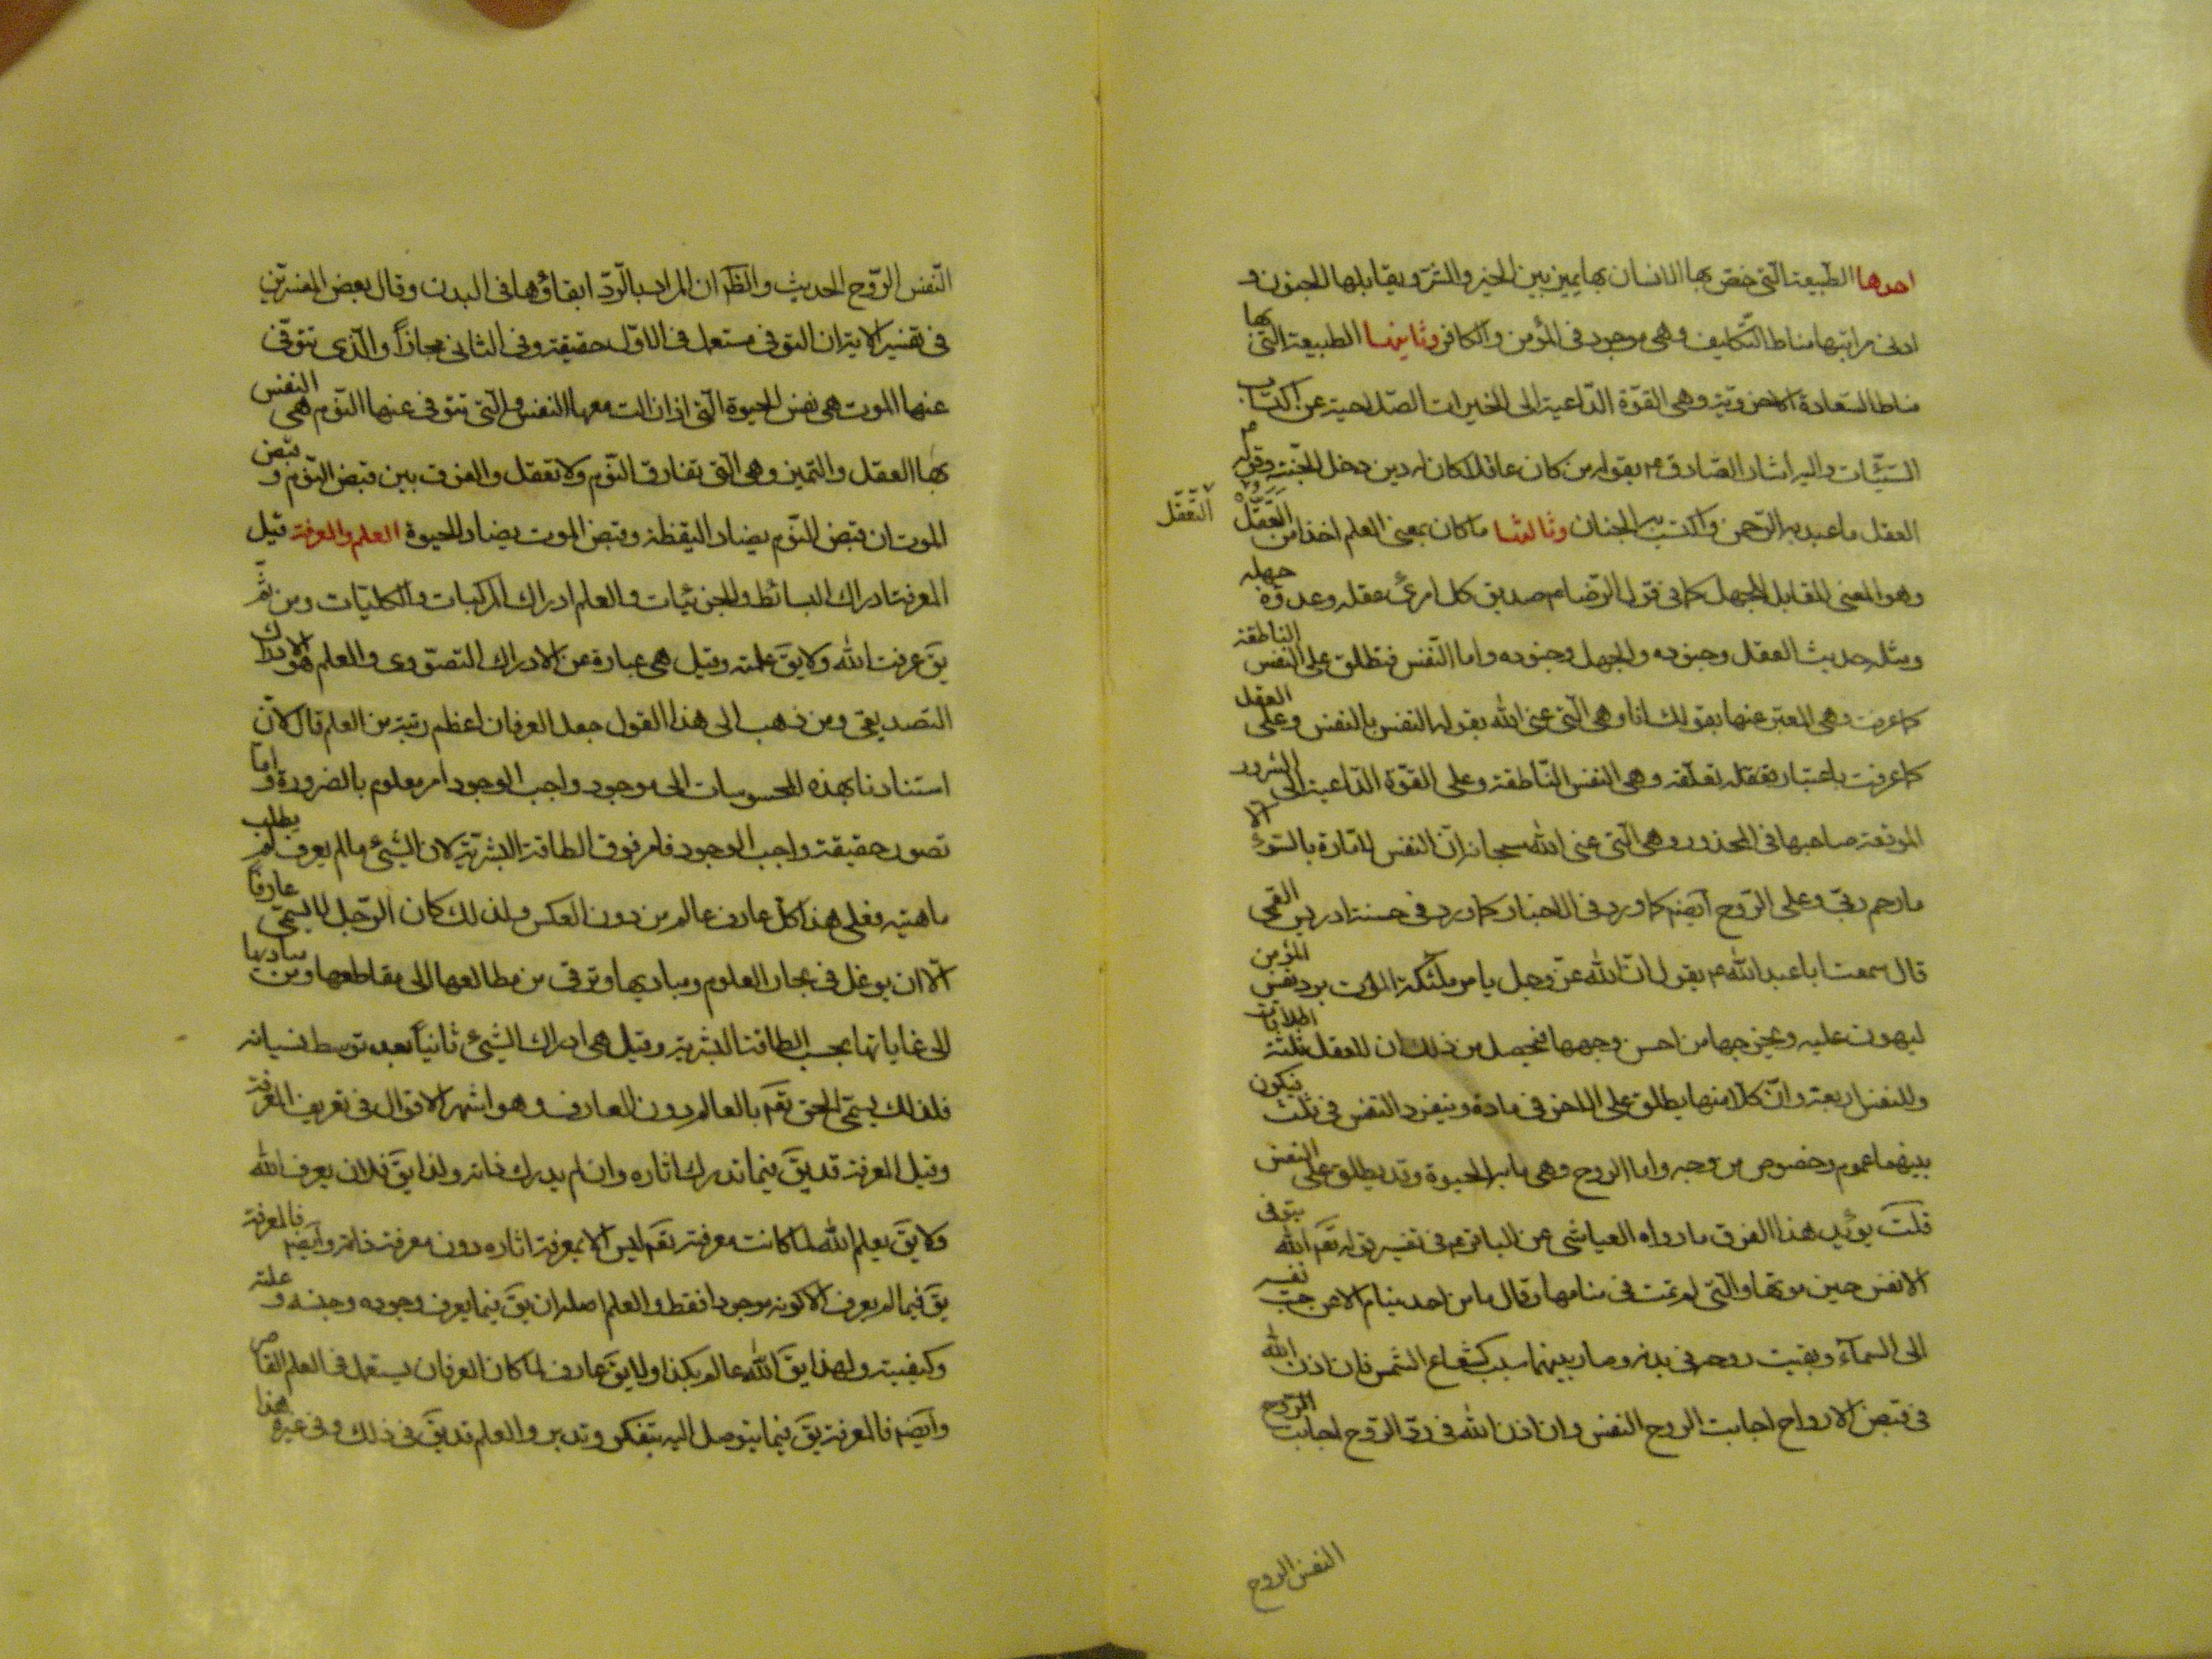 احدها الطبيعة الّتي خصّ بها الانسان بها يميز بين الخير والشرّ ويقابلها الجنون و
ادنى مراتبها مناط التّكليف وهي موجود في المؤمن والكافر وثانيها الطبيعة الّتي بها
مناط السّعادة الاخرويّة وهي القوّة الدّاعية الى الخيرات الصّارفة عن اكتساب
السيّئات واليه اشار الصّادق ع بقوله من كان عاقلا كان له دين دخل الجنّة وقوله ع
العقل ما عبد به الرّحمن واكتسب به الجنان وثالثها ما كان بمعنى العلم اخذا من التّعقّل
التّعقّل
وهو المعنى المقابل للجهل كما في قول الرّضا ع صديق كل امرئ عقله وعدوّه جهله
ومثله حديث العقل وجنوده والجهل وجنوده واما النّفس فتطلق على النّفس الناطقة
كما عرفت وهي المعبّر عنها بقولك انا وهي الّتي عنى الله بقوله النفس بالنفس وعلى العقل
كما عرفت باعتبار تعقله تعلّقه وهي النفس النّاطقة وعلى القوّة الدّاعية الى الشرور
الموقعة صاحبها في المحذور وهي الّتي عنى الله سبحانه انّ النفس لامّارة بالسّوء الا
ما رحم ربّي وعلى الرّوح ايضم كما ورد في الاخبار كما ورد في حسنة ادريس القمي
قال سمعت ابا عبد الله ع يقول انّ الله عزّ وجل يامر ملئكة الموت برد نفس المؤمن
ليهون عليه ويخرجها من احسن وجهها فيحصل من ذلك ان للعقل ثلثة اطلاقات
وللنفس اربعة وانّ كلا منها يطلق على الاخر في مادة وينفرد النفس في ثلث فيكون
بينهما عموم وخصوص من وجه واما الروح وهي ما به الحيوة وقد يطلق على النفس
قلت يؤيد هذا الفرق ما رواه العياشي عن الباقر ع في تفسير قوله تعم الله يتوفى
الانفس حين موتها والّتي لم تمت في منامها وقال ما من احد ينام الا عرجت نفسه
الى السماء وبقيت روحه في بدنه وصار بينهما سبب كشعاع الشمس فان اذن الله
في قبض الارواح اجابت الروح النفس وان اذن الله في ردّ الرّوح اجابت الرّوح
النفس الروح
النّفس الرّوح الحديث والظّم ان المراد بالرّد ابقاؤها في البدن وقال بعض المفسّرين
في تفسير الاية ان التوفي مستعمل في الاوّل حقيقة وفي الثاني مجازاً والّذي تتوفّى
عنها الموت هي نفس الحيوة الّتي اذا زالت معها النفس والّتي تتوفى عنها النّوم هي النفس
بها العقل والتّميز وهي الّتي تفارق النّوم ولا تعقل والفرق بين قبض النّوم و قبض
الموت ان قبض النّوم يضاد اليقظة وقبض الموت يضاد الحيوة العلم والمعرفة قيل
المعرفة ادراك البسائط والجزئيات والعلم ادراك المركبات والكليّات ومن ثمّ
يقَ عرفت الله ولا يقَ علمته وقيل هي عبارة عن الادراك التصوّري والعلم هو الادراك
التصديقي ومن ذهب الى هذا القول جعل العرفان اعظم رتبة من العلم قال لانّ
استنادنا بهذه المحسوسات الى موجود واجب الوجود امر معلوم بالضرورة و امّا
تصور حقيقة واجب الوجود فامر فوق الطاقة البشريّة لان الشيء ما لم يعرف لم يطلب
ماهيته وفعلى هذا كلّ عارف عالم من دون العكس ولذلك كان الرّجل لا يسمّى عارفا
الّا ان يوغل في بحار العلوم ومباديها وترقى من مطالعها الى مقاطعها ومن مباديها
الى غاياتها بحسب الطاقة البشرية وقيل هي ادراك الشيء ثانياً بعد توسط نسيانه
فلذلك يسمّى الحق تعم بالعالم دون العارف وهو اشهر الاقوال في تعريف المعرفة
وقيل المعرفة قد يقَ فيما تدرك اثاره وان لم يدرك ذاته ولذا يقَ فلان يعرف الله
ولا يقَ يعلم الله لما كانت معرفته تعم ليس الا بمعرفة اثاره دون معرفة ذاته وايضم فالمعرفة
يقَ فيما لم يعرف الا كونه موجودا فقط والعلم اصله ان يقَ فيما يعرف وجوده وجنسه و علته
وكيفيته ولهذا يقَ الله عالم بكذا ولا يقَ عارف لما كان العرفان يستعمل في العلم القاصر
وايضم فالمعرفة يقَ فيما يتوصل اليه بتفكر وتدبر والعلم قد يقَ في ذلك وفي غيره هذا